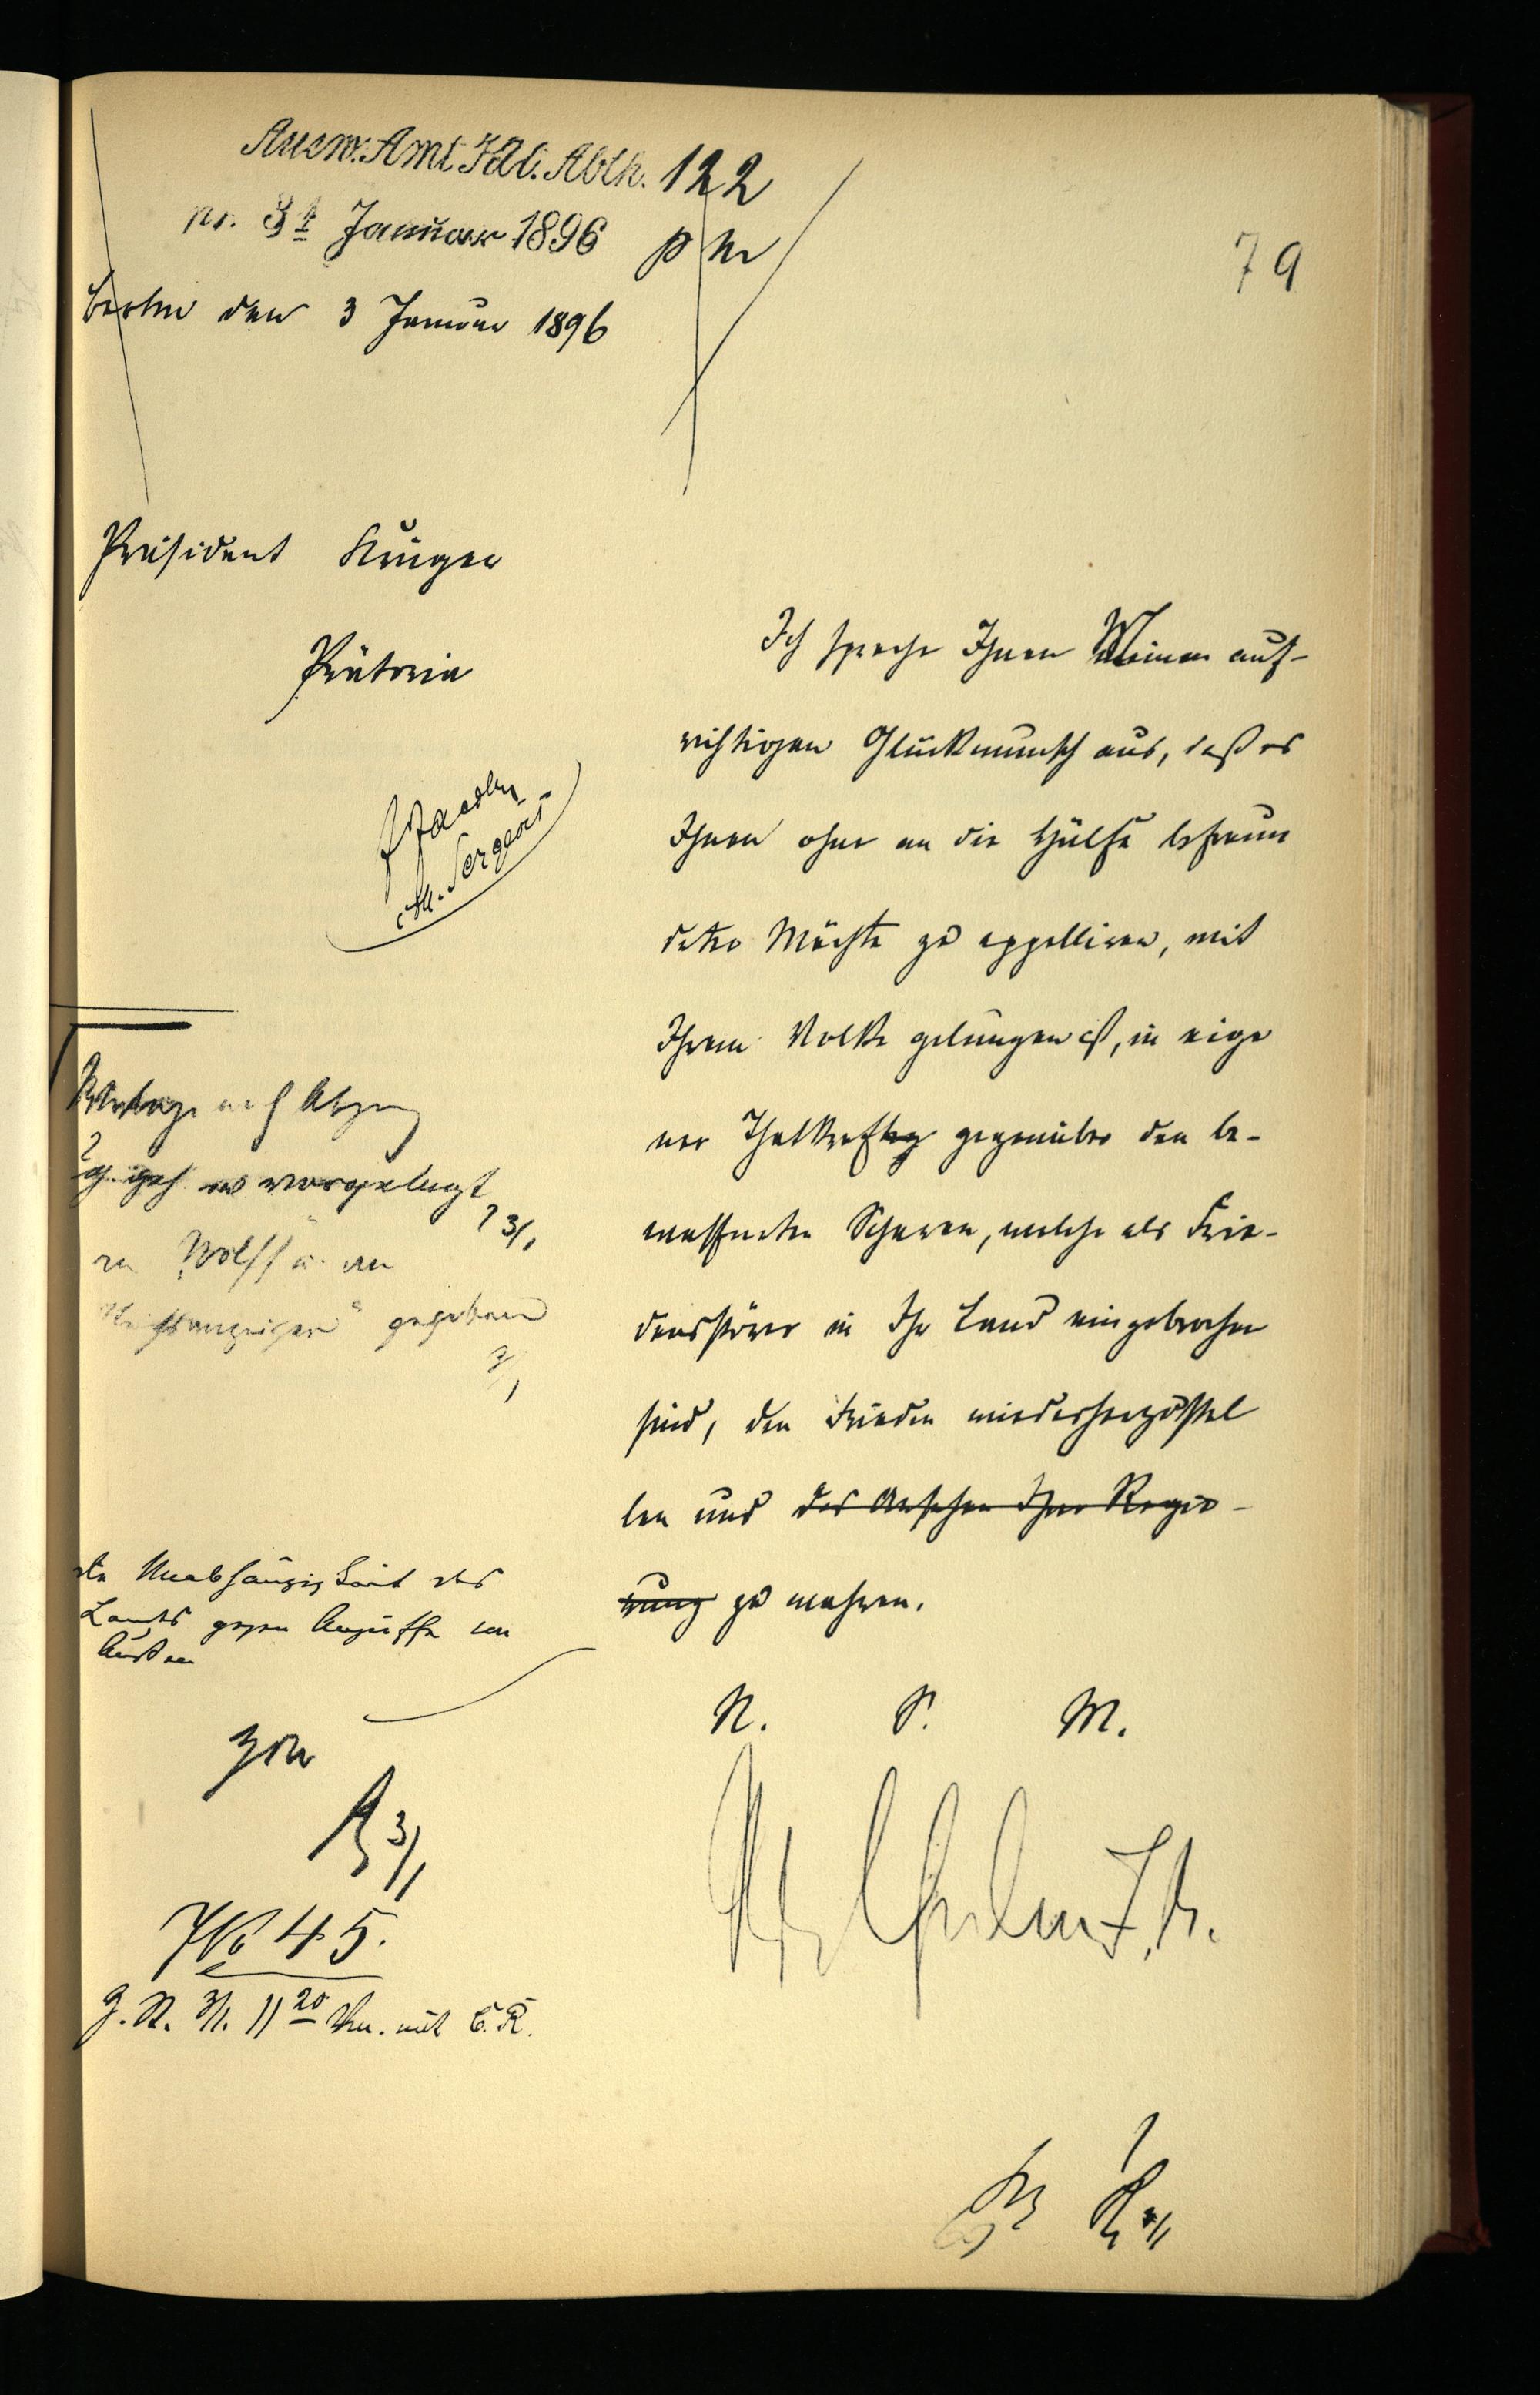 Ausw. Amt Abth. 122
pr. 3t Januar 1896 p m
79
Berlin den 3 Januar 1896
Präsident Krüger
Prätoria
Ich spreche Ihnen Meinen auf-
richtigen Glückwunsch aus, daß es
Ihnen ohne an die Hülfe befreun
deter Mächte zu appelliren, mit
Ihrem Volke gelungen ist, in eige
ner Thatkraft gegenüber den be-
waffneten Scharen, welche als Frie-
densstörer in Ihr Land eingebrochen
sind, den Frieden wiederherzustel
len und das Ansehen Ihrer Regie-
rung zu wahren.
nach Abgang
vorgelegt
3/1
an Wolff u. an
Reichsanzeiger gegeben
3/1
die Unabhängigkeit des
Landes gegen Angriffe von
Außen
N. S. M.
Wilhelm I. R.
3/1
No 45.
3/1. 11 20 Vm. mit